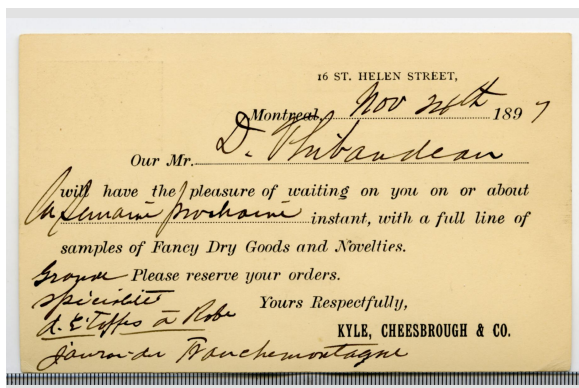 16 ST. HELEN STREET,
Montreal, Nov 26th 1897
Our Mr. D. Thibaudeau
will have the pleasure of waiting on you on or about
la semaine prochaine instant, with a full line of
samples of Fancy Dry Goods and Novelties.
Grande Please reserve your orders.
spécialité Yours Respectfully,
d'Étoffes à Robe
KYLE, CHEESBROUGH & CO.
Franchemontagne